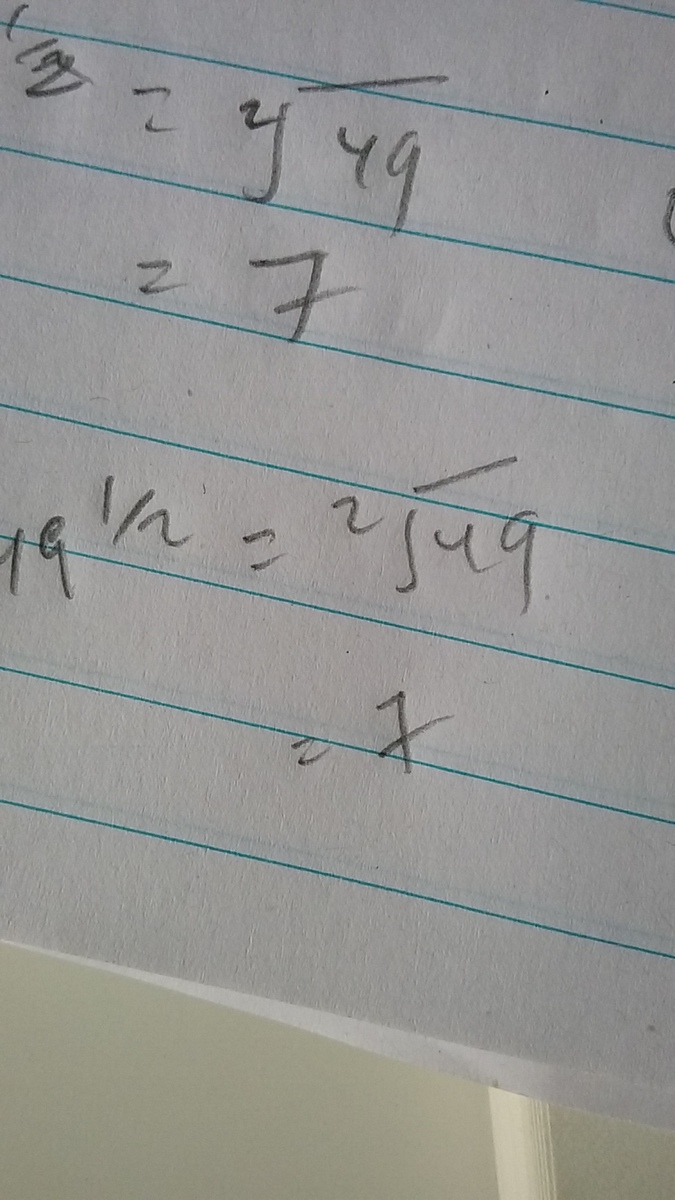 1/2 = ²√49
= 7
49^1/2 = ²√49
= 7